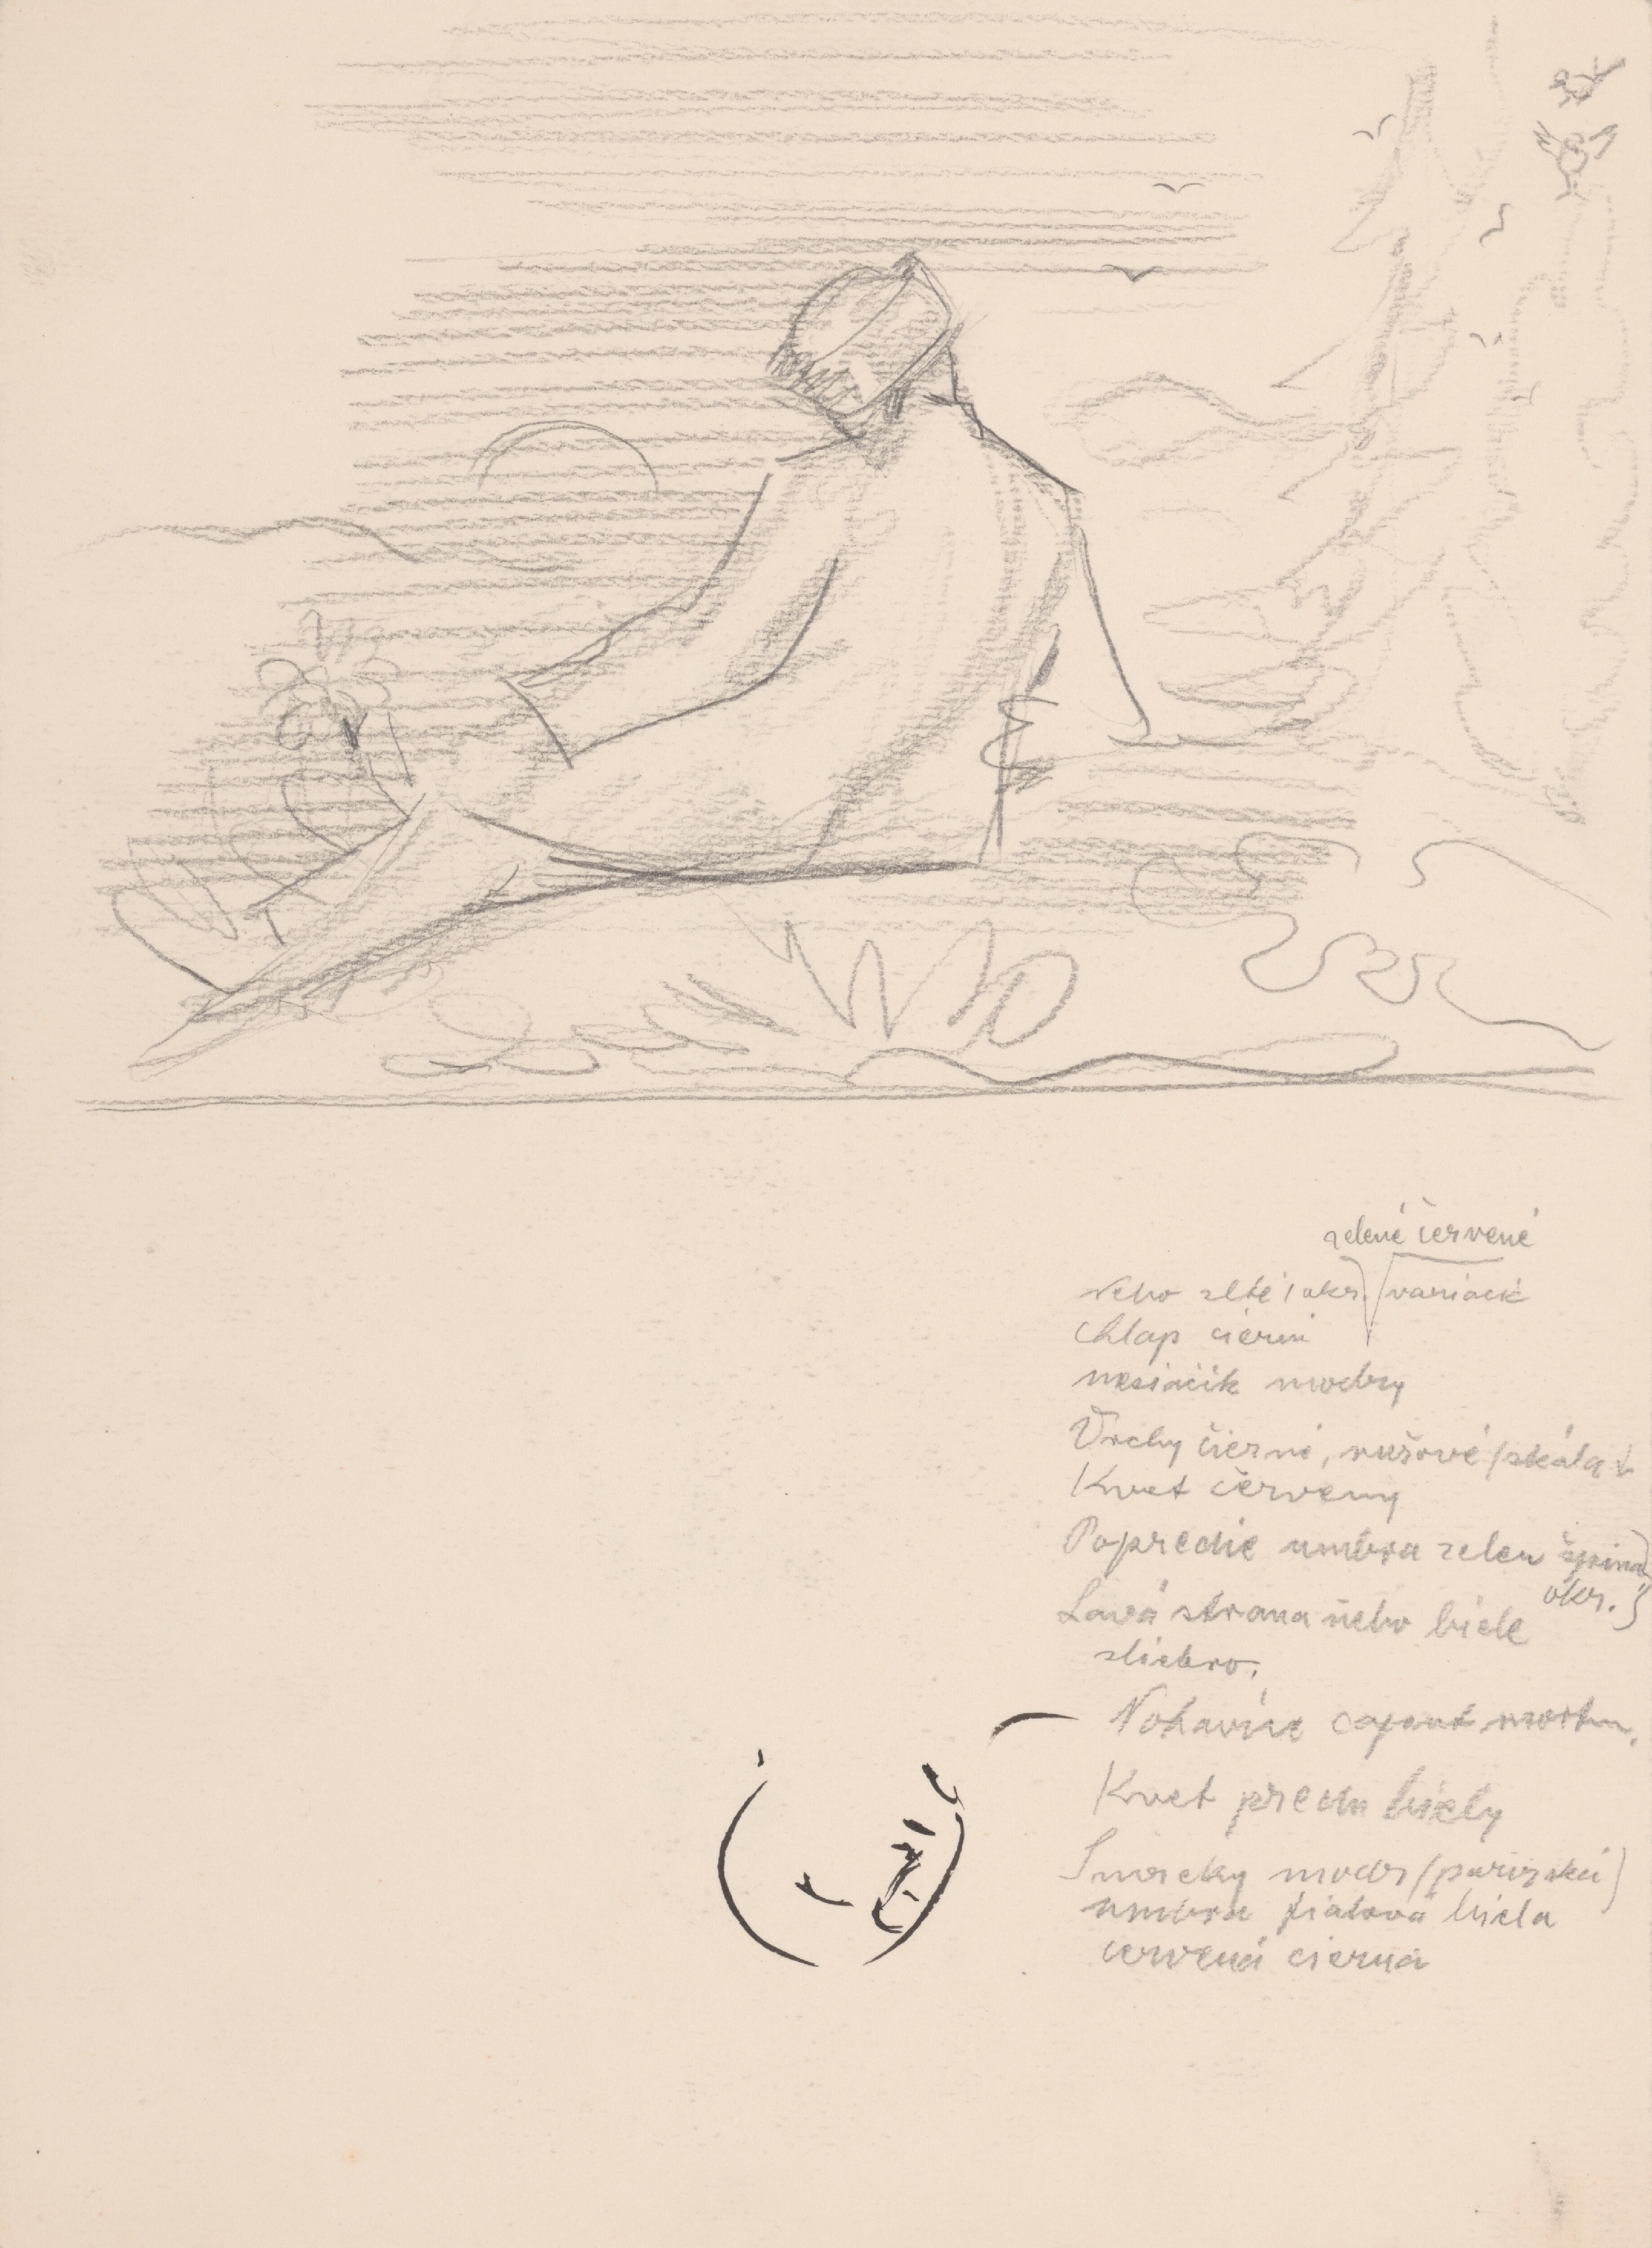 zelené červené
nebo zlté / okr. variacie
Chlap cierni
mesiacik modry
Vrchy čierne, ružové / skála
Kvet červeny
Popredie umbra zelen špina
okr.
Lavá strana nebo biele
sliebro.
Nohavice caput mortu.
Kvet predu biely
Smreky modr (parizská)
umbra fialová biela
cervená cierna